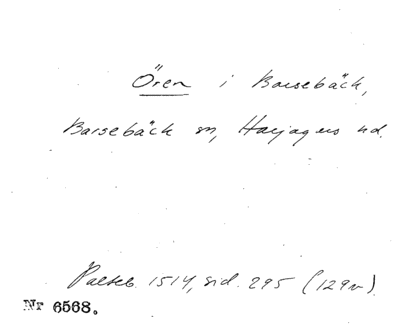 Ören i Barsebäck,
Barsebäck sn, Harjagers hd.
Palteb. 1514, sid. 295 (129v)
Nr 6568.